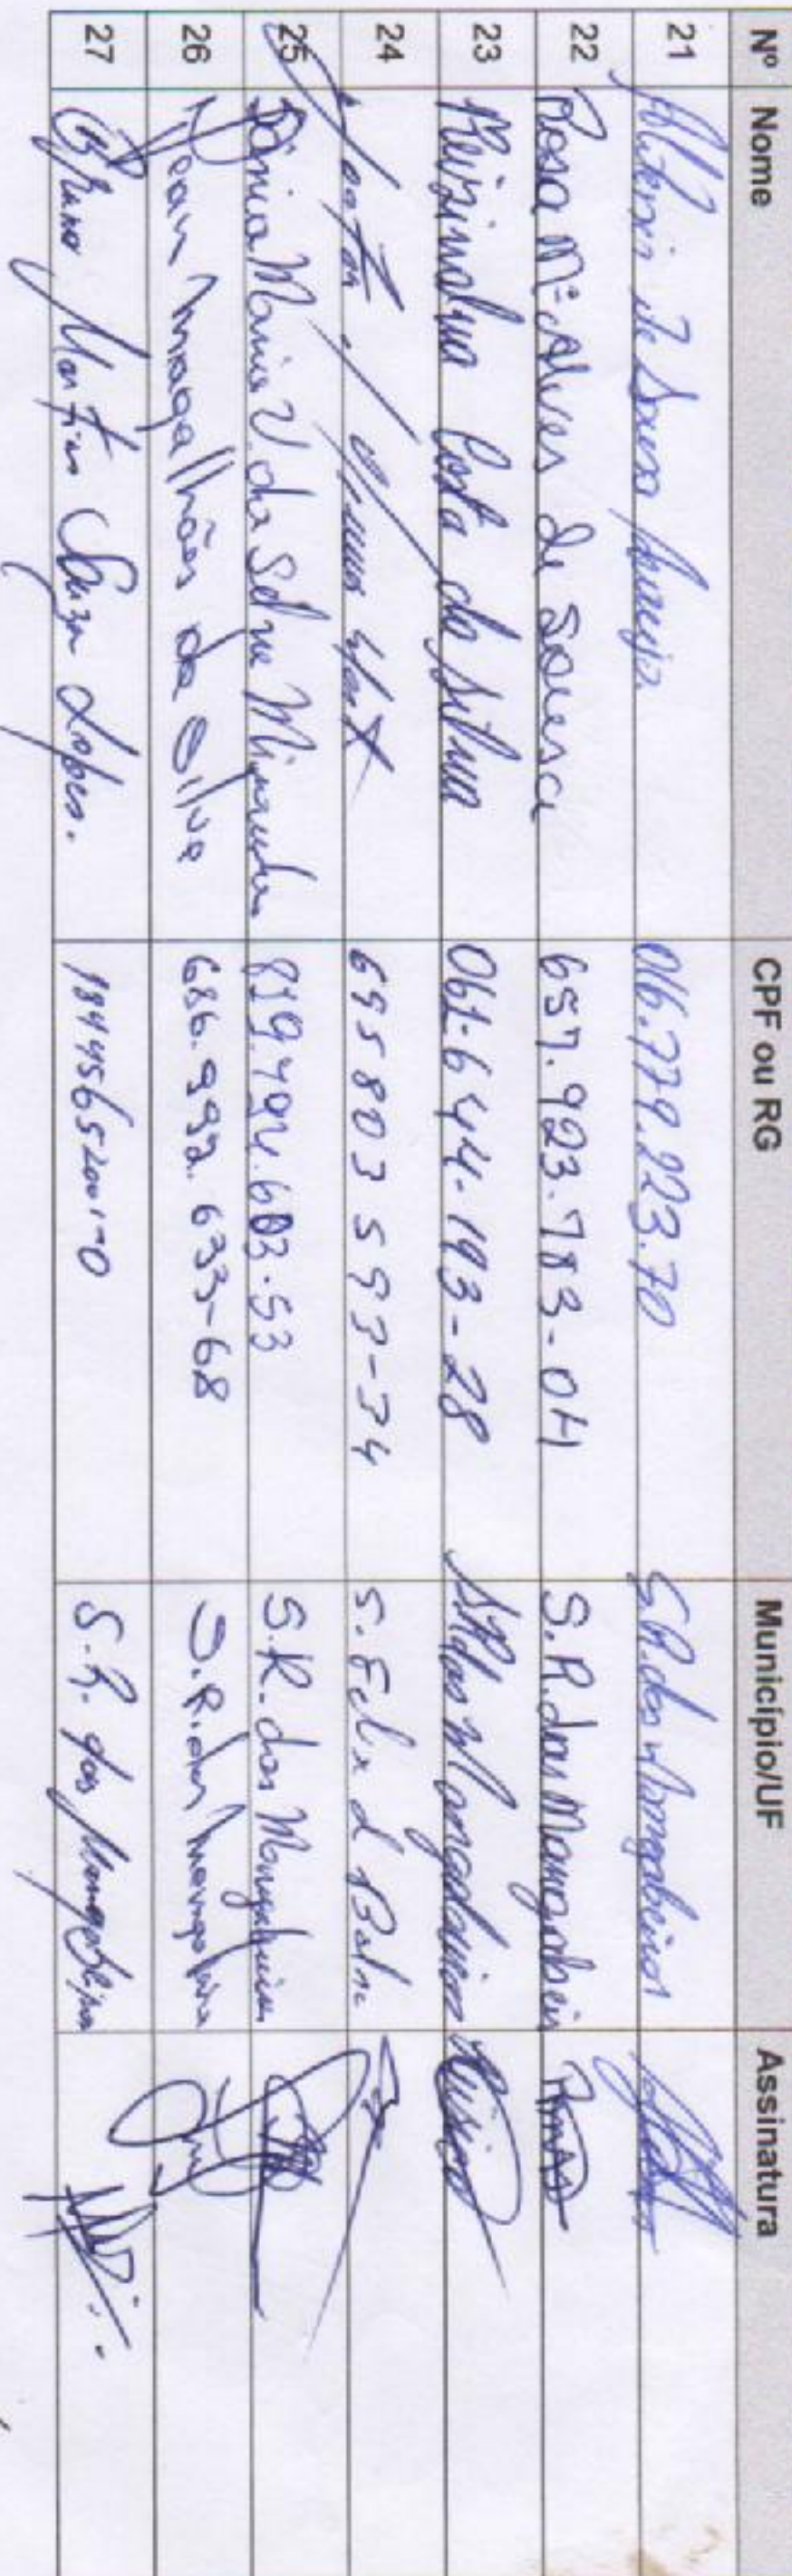 Nº Nome CPF ou RG Município/UF Assinatura
21 de Sousa Araujo 016.779.223.70 S.R. das Mangabeiras
22 Rosa Mª Alves de Sousa 657.923.783-04 S.R. das Mangabeir
23 Costa da Silva 061.644.193-28 S.R das Mangabeiras
24 695803593-34 S. Felix d Bals
25 Maria V. da Silva Miranda 819.794.603.53 S.R. das Mangabeiras
26 Jean Magalhães da Silva 686.992.633-68 S.R. das Mangabeira
27 Bruno Martins Souza Lopes. 18445652001-0 S.R. das Mangabeiras